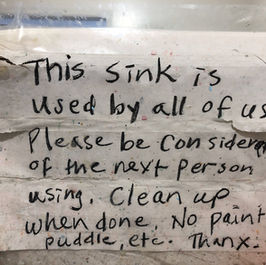 This sink is
used by all of us
Please be Considera
of the next person
using. Clean up
when done. No paint
puddle, etc. Thanx.